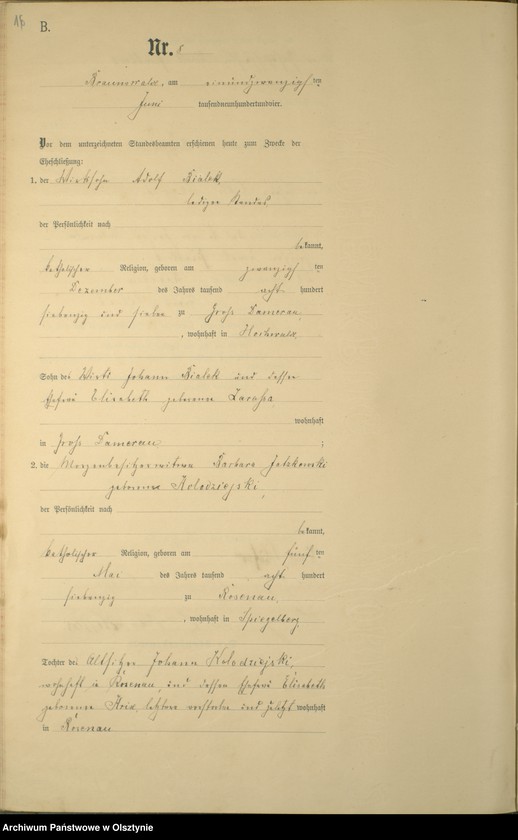 B.
Nr. 8
Braunswalde, am einundzwanzigsten
Juni tausendneunhundertundvier.
Vor dem unterzeichneten Standesbeamten erschienen heute zum Zwecke der
Eheschließung:
1. der Wirtssohn Adolf Bialek,
lediger Standes,
der Persönlichkeit nach
bekannt,
katholischer Religion, geboren am zwanzigsten
Dezember des Jahres tausend acht hundert
siebenzig und sieben zu Groß Damerau,
, wohnhaft in Hochwalde
Sohn des Wirts Johann Bialek und dessen
Ehefrau Elisabeth geborene
wohnhaft
in Groß Damerau ;
2. die Barbara
geborene Kolodzieyski,
der Persönlichkeit nach
bekannt,
katholischer Religion, geboren am fünften
Mai des Jahres tausend acht hundert
siebenzig zu Rosenau,
, wohnhaft in Spiegelberg
Tochter des Altsitzer Johann Kolodzieyski,
wohnhaft in Rosenau, und dessen Ehefrau Elisabeth
geborenen letztere verstorben und zuletzt wohnhaft
in Rosenau
Archiwum Państwowe w Olsztynie